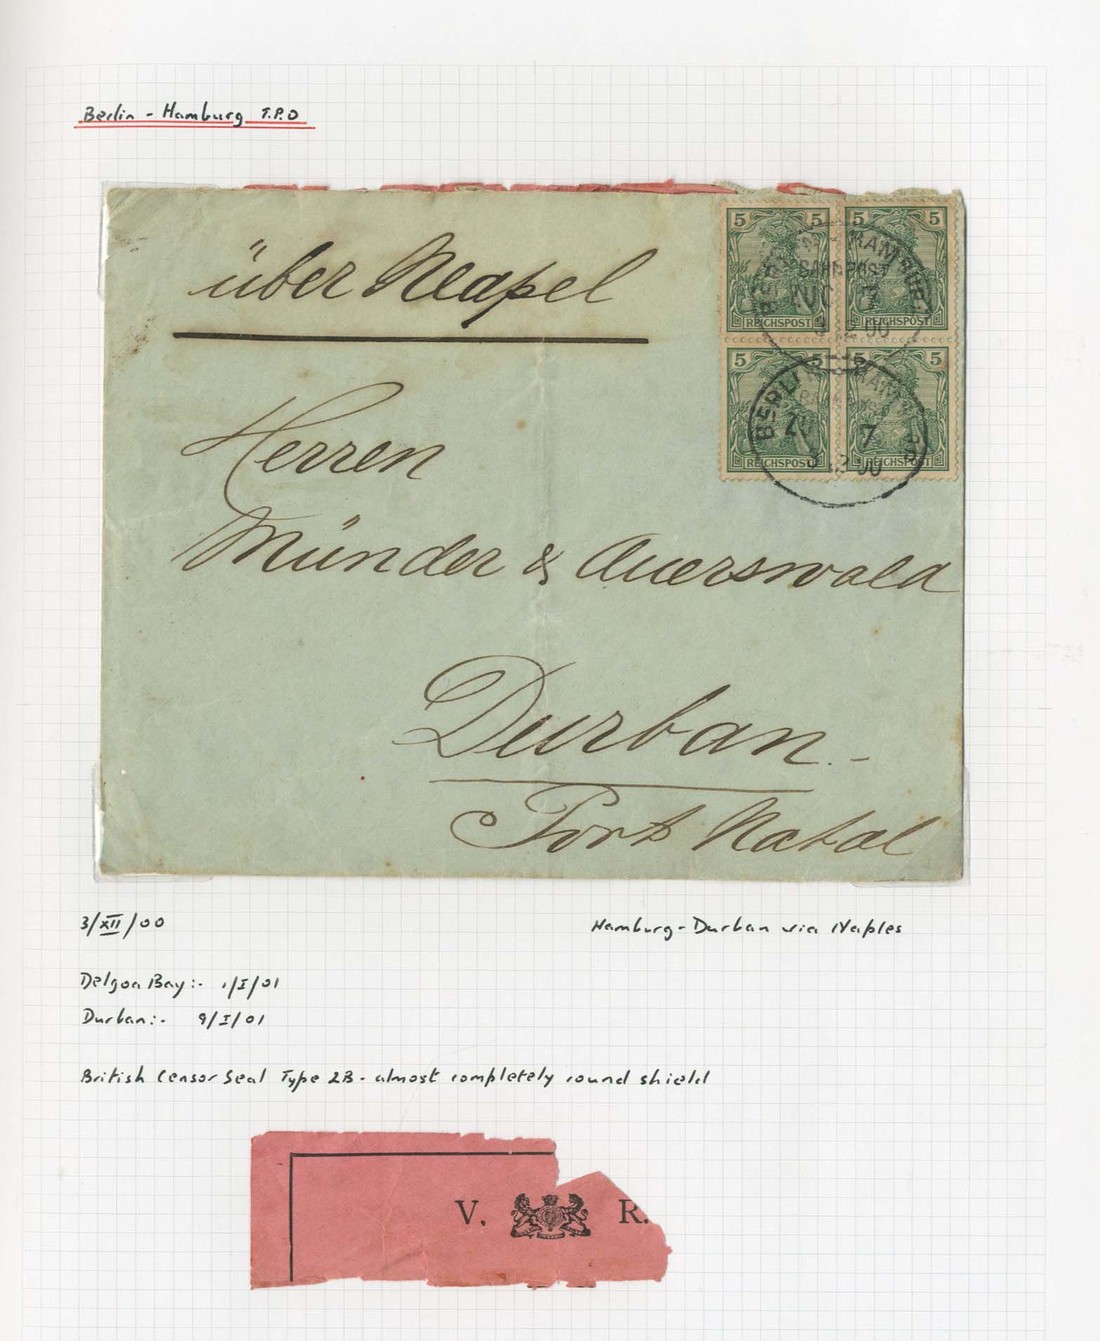 Berlin - Hamburg T.P.O
über Neapel
5 5 5 5
BERLIN HAMBURG
BAHNPOST
ZUG
REICHSPOST REICHSPOST
5 5 5 5
BERLIN HAMBURG
7
12 00
REICHSPOST REICHSPOST
Herren
Münder & Auerswald
Durban.-
Port Natal
3/XII/00
Hamburg-Durban via Naples
Delgoa Bay:- 1/I/01
Durban:- 9/I/01
British Censor Seal Type 2B - almost completely round shield
V. R.